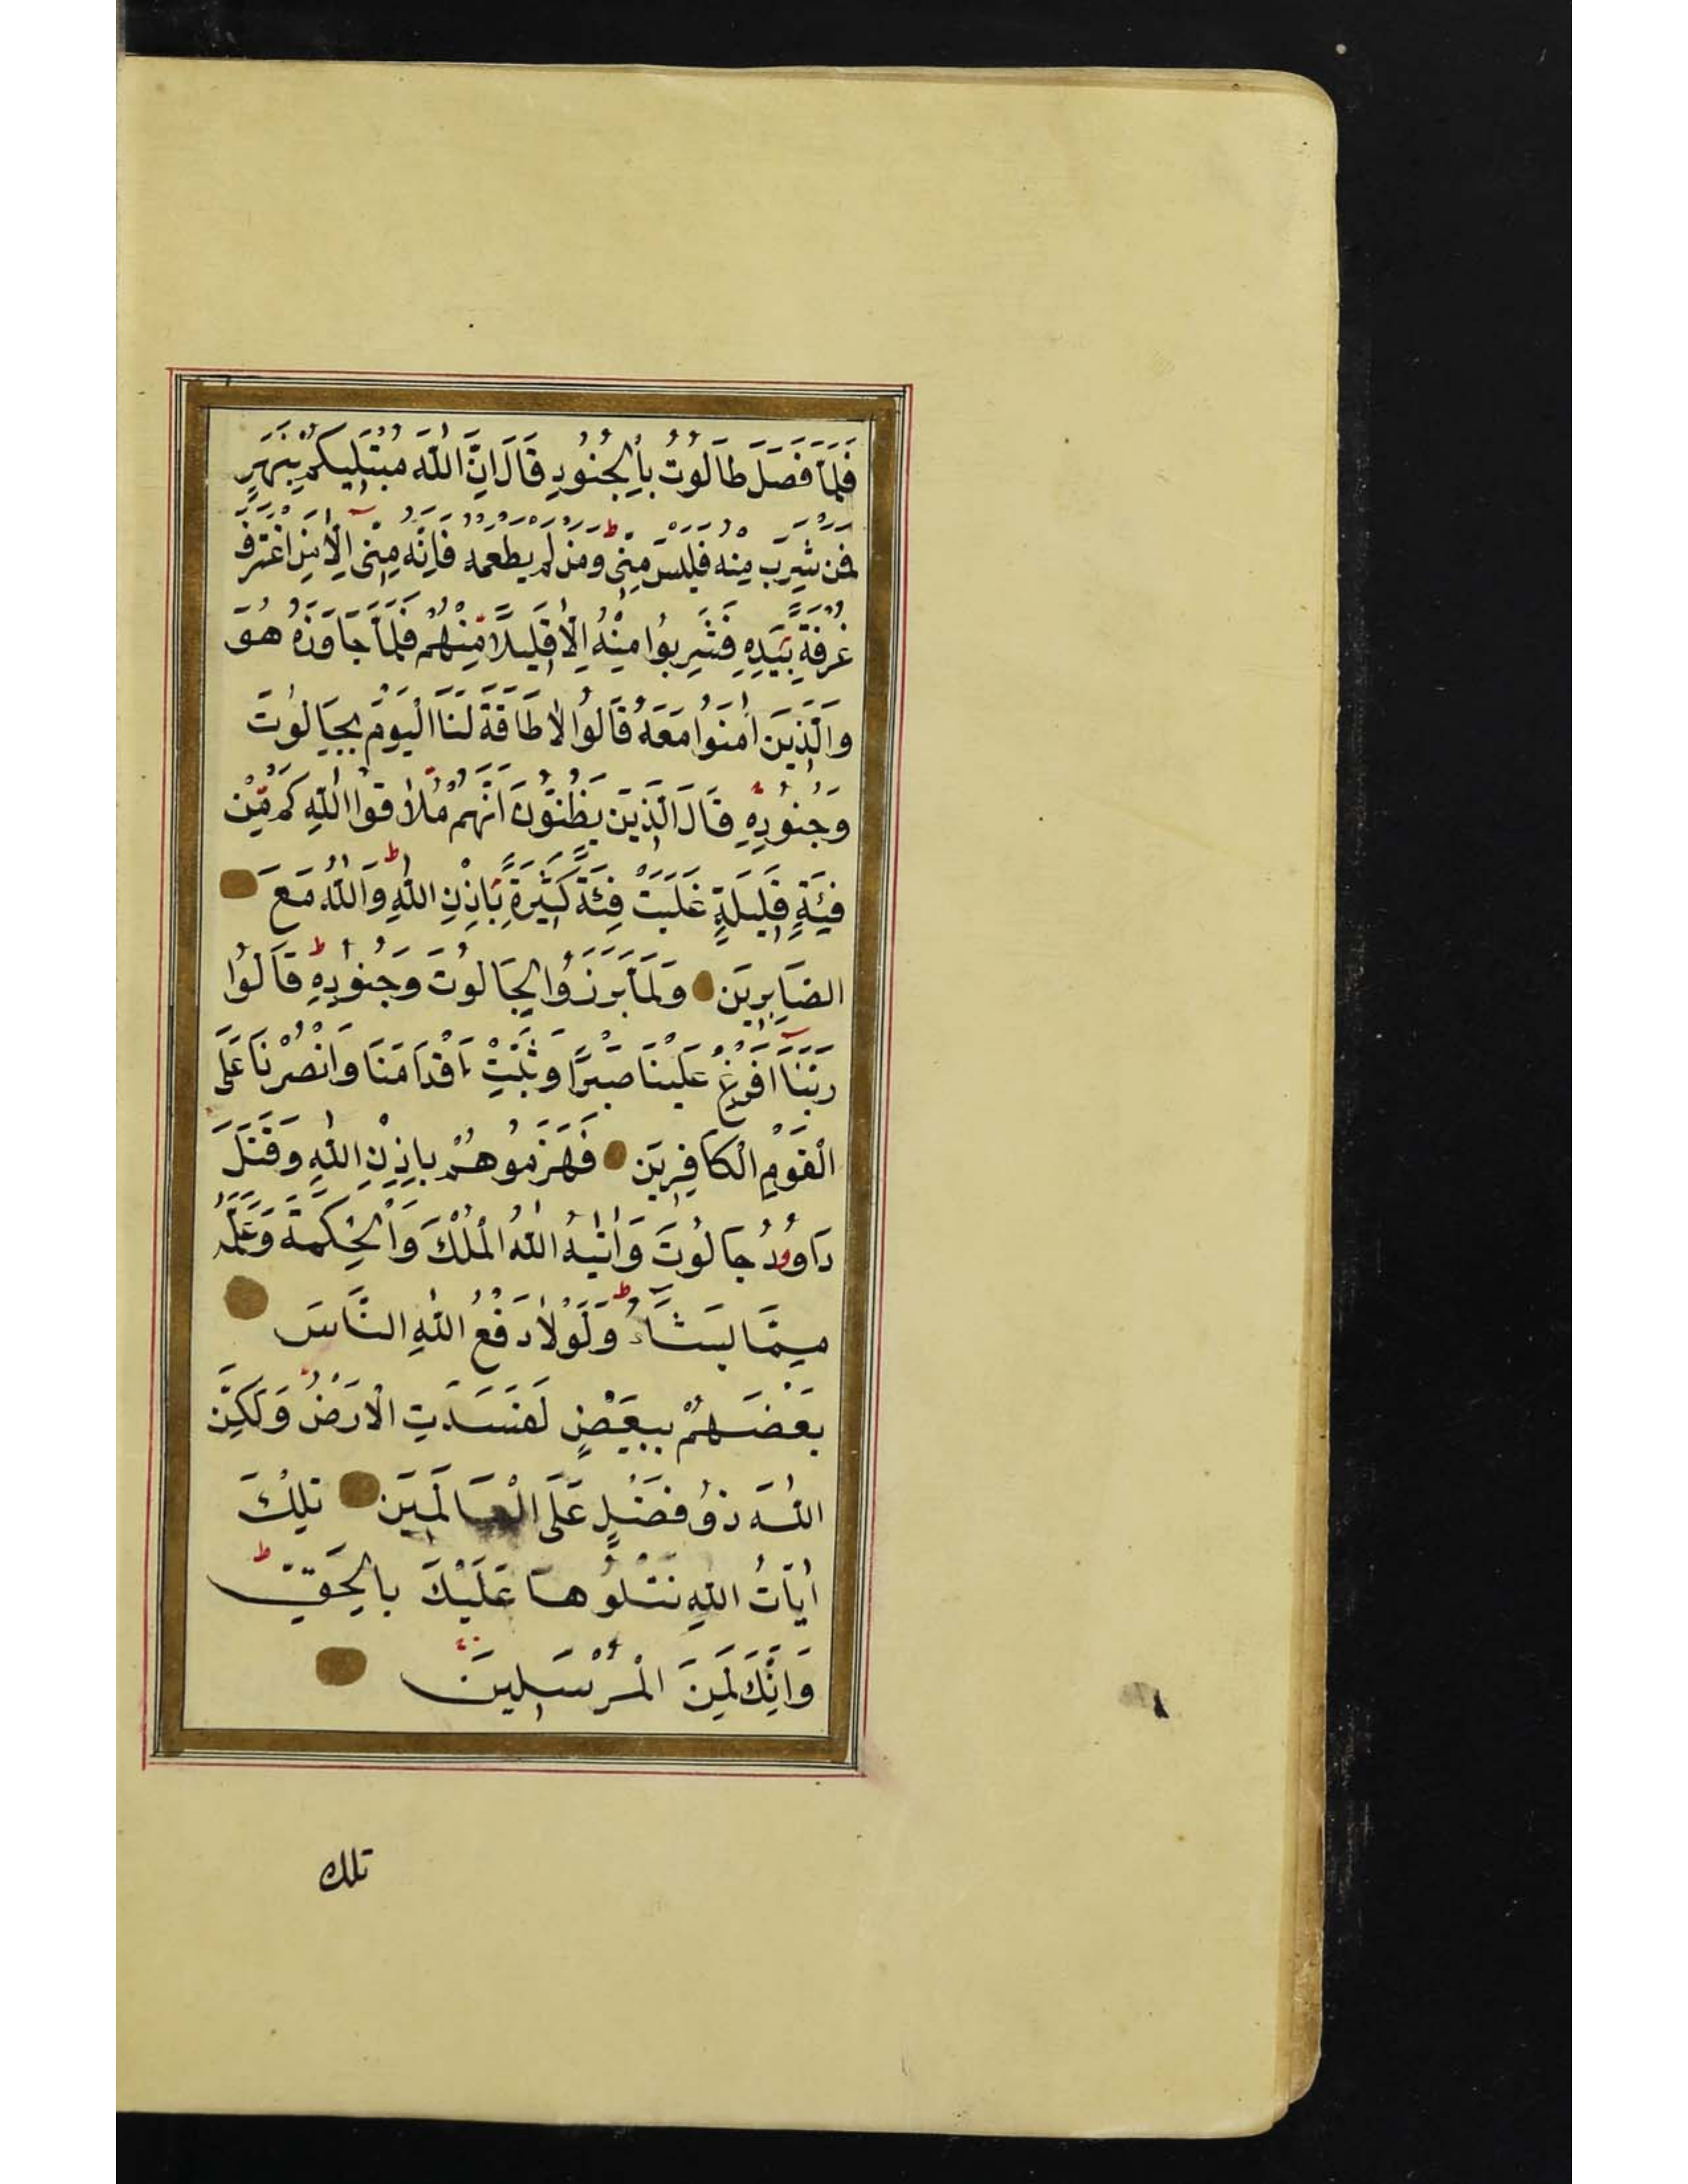 فَلَمَّا فَصَلَ طَالُوتُ بِالْجُنُودِ قَالَ اِنَّ اللّٰهَ مُبْتَلِيكُمْ بِنَهَرٍ
فَمَنْ شَرِبَ مِنْهُ فَلَيْسَ مِنِّي ط وَمَنْ لَمْ يَطْعَمْهُ فَاِنَّهُ مِنِّي اِلَّا مَنِ اغْتَرَفَ
غُرْفَةً بِيَدِهِ فَشَرِبُوا مِنْهُ اِلَّا قَلِيلًا مِنْهُمْ فَلَمَّا جَاوَزَهُ هُوَ
وَالَّذِينَ اٰمَنُوا مَعَهُ قَالُوا لَا طَاقَةَ لَنَا الْيَوْمَ بِجَالُوتَ
وَجُنُودِهِ قَالَ الَّذِينَ يَظُنُّونَ اَنَّهُمْ مُلَاقُوا اللّٰهِ كَمْ مِنْ
فِئَةٍ قَلِيلَةٍ غَلَبَتْ فِئَةً كَثِيرَةً بِاِذْنِ اللّٰهِ ط وَاللّٰهُ مَعَ
الصَّابِرِينَ وَلَمَّا بَرَزُوا لِجَالُوتَ وَجُنُودِهِ ط قَالُوا
رَبَّنَا اَفْرِغْ عَلَيْنَا صَبْرًا وَثَبِّتْ اَقْدَامَنَا وَانْصُرْنَا عَلَى
الْقَوْمِ الْكَافِرِينَ فَهَزَمُوهُمْ بِاِذْنِ اللّٰهِ وَقَتَلَ
دَاوُودُ جَالُوتَ وَاٰتٰيهُ اللّٰهُ الْمُلْكَ وَالْحِكْمَةَ وَعَلَّمَهُ
مِمَّا يَشَاءُ ط وَلَوْلَا دَفْعُ اللّٰهِ النَّاسَ
بَعْضَهُمْ بِبَعْضٍ لَفَسَدَتِ الْاَرْضُ وَلٰكِنَّ
اللّٰهَ ذُو فَضْلٍ عَلَى الْعَالَمِينَ تِلْكَ
اٰيَاتُ اللّٰهِ نَتْلُوهَا عَلَيْكَ بِالْحَقِّ ط
وَاِنَّكَ لَمِنَ الْمُرْسَلِينَ
تلك